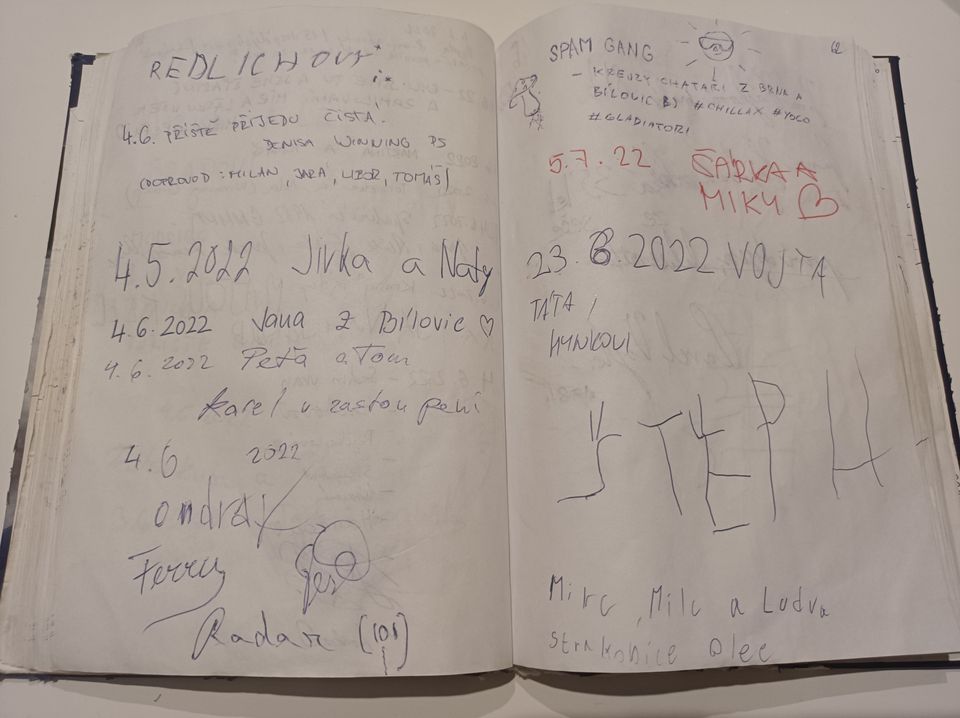 REDLICHOVI
4.6. PŘÍŠTĚ PŘIJEDU ČISTÁ!
DENISA WINNING PS
(DOPROVOD: MILAN, JARA, LIBOR, TOMÁŠ)
4.5.2022 Jivka a Naty
4.6.2022 Jana z Bílovic ♡
4.6.2022 Peťa a Tom
Karel v zastoupení
4.6 2022
ondra
Ferry
Radar (101)
62
SPAM GANG
- KREJZY CHATAŘI Z BRNA A
BÍLOVIC BJ #CHILLAX #YOLO
#GLADIATOŘI
5.7.22 ŠÁRKA A
MIKY ♡
23.6.2022 VOJTA
TÁTA,
HYNKOVI
ŠTĚPH
Mirc, Milc a Ludva
Strakonice Olec